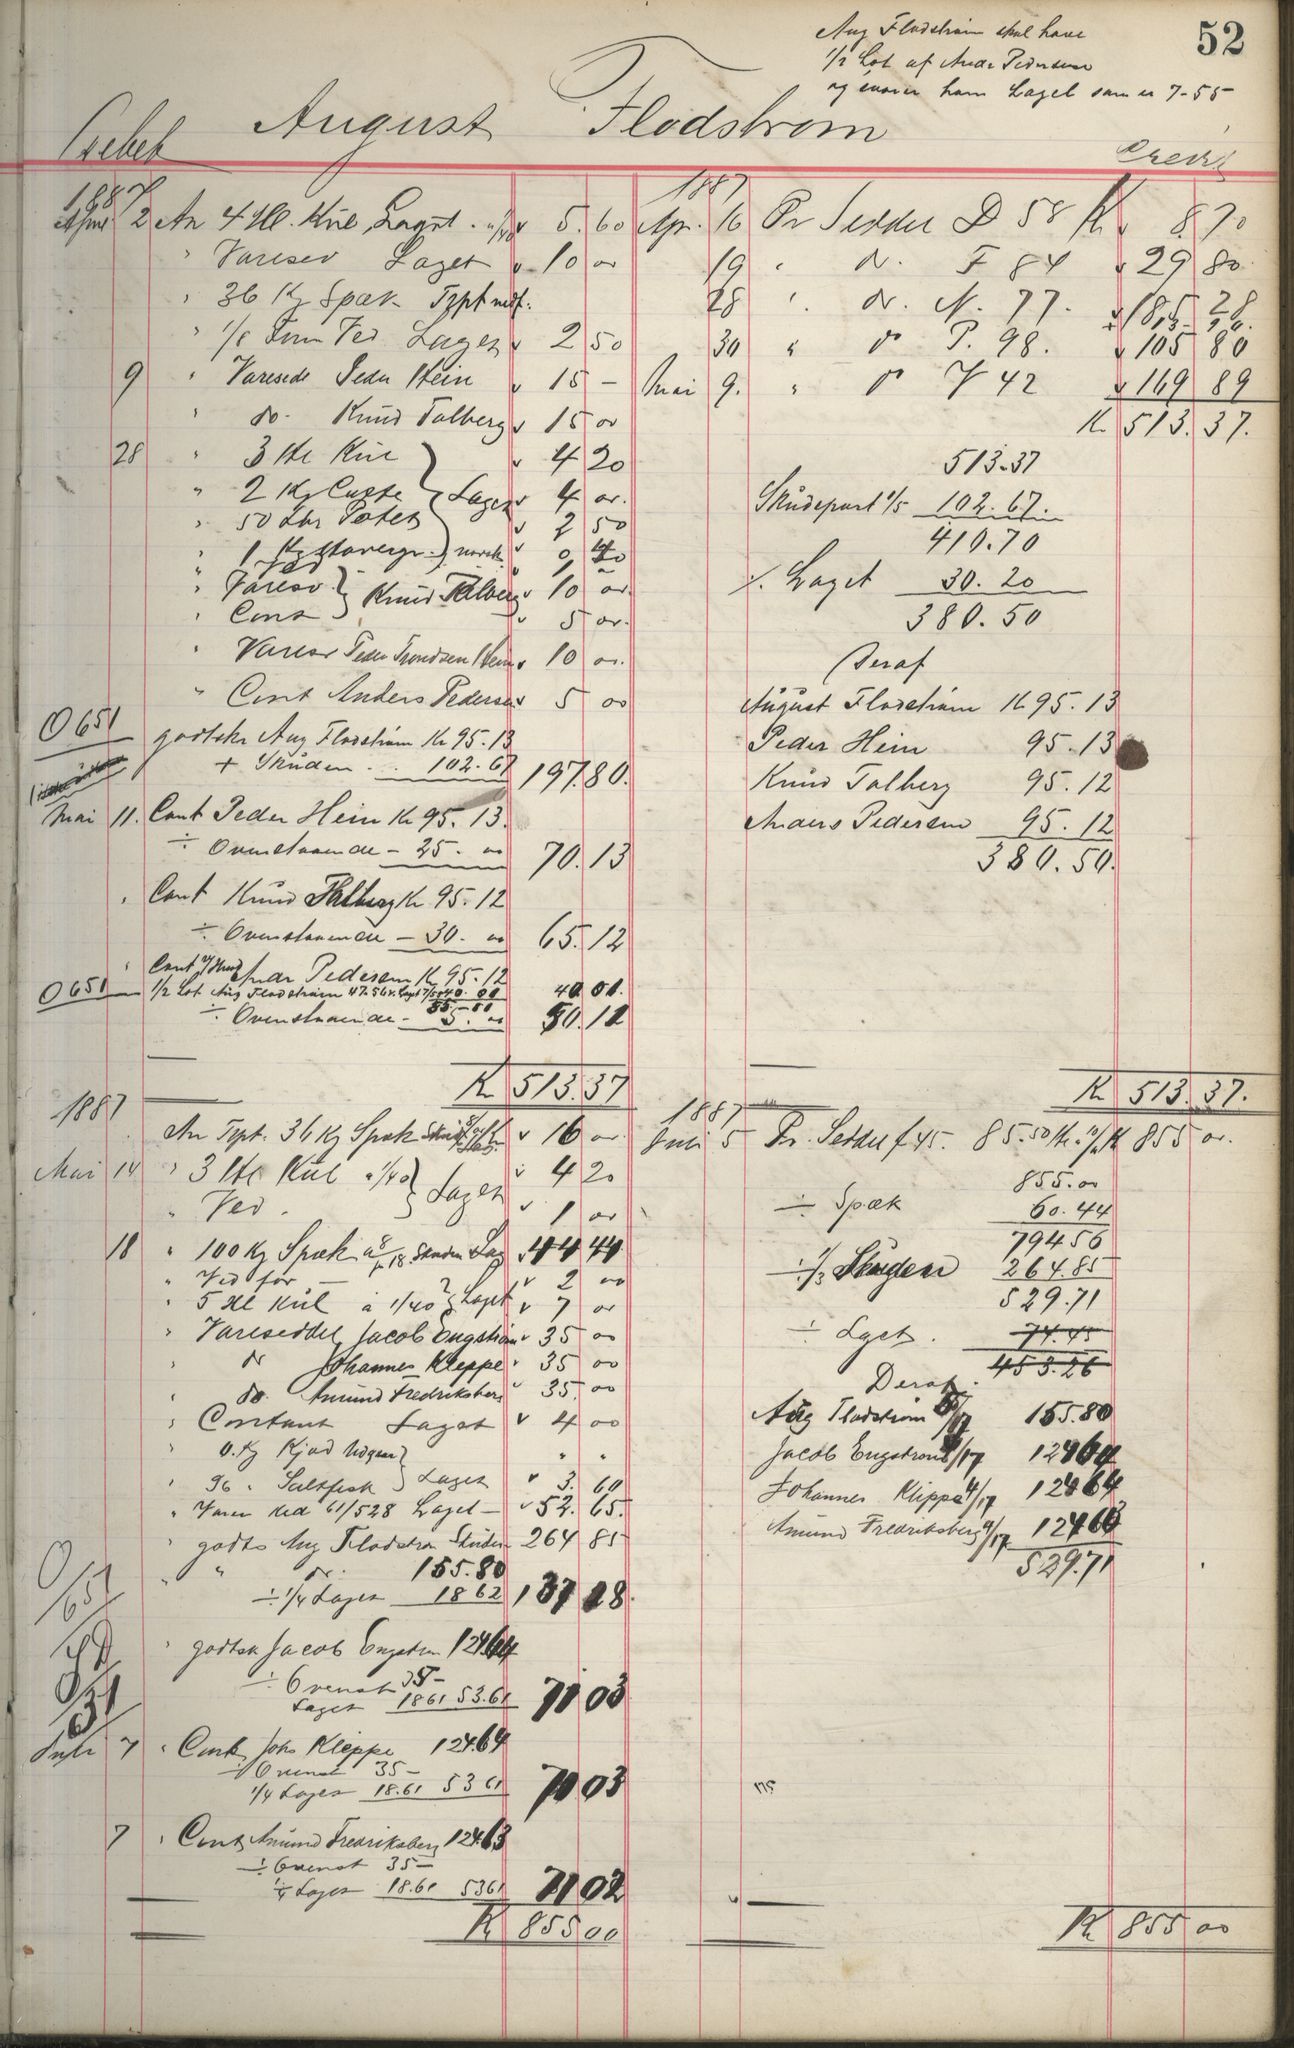 52
Aug Flodstrøm skal have
1/2 Lot af Andr Pedersen
og svarer ham Laget som er 7-55
August Flodstrøm
Debet
Credit
1887
April 2 An 4 Hl. Kul, Laget 5.60
" Varesed Laget 10 00
" 36 Kg Spæk Trpt nedf.
" 1/8 Favn Ved Laget 2 50
9 " Varesede Peder Hein 15 -
" do. Knud Talberg 15 00
28 " 3 Hl Kul 4 20
" 2 Kg 4 00
" 50 Ltr Potet Laget 2 50
" 1 Kg norsk
" Varesed. Knud Talberg 10 00
" Cont 5 00
" Varesed Peder Trondsen Hein 10 00
" Cont Anders Pedersen 5 00
O 651 godtskr Aug Flodstrøm Kr 95.13
+ Skuden 102.67 197.80
Mai 11. Cont Peder Hein Kr 95.13
÷ Ovenstaaende - 25.00 70.13
" Cont Knud Talberg Kr 95.12
÷ Ovenstaaende - 30.00 65.12
" Cont Andr Pedersen Kr 95.12
O 651 1/2 Lot Aug Flodstrøm 47.56 40 01
÷ Ovenstaaende - 5.00 50.11
Kr 513.37
1887
Apr. 16 Pr Seddel D 58 Kr 8.70
19 " do. F 84 29 80
28 " do. N. 77. 185 28
30 " do P. 98. 105 80
Mai 9. " do Y 42 169 89
Kr 513.37.
513.37
Skudepart 1/5 102.67.
410.70
÷ Laget 30.20
380.50
Deraf
August Flodstrøm Kr 95.13
Peder Hein 95.13
Knud Talberg 95.12
Anders Pedersen 95.12
380.50.
Kr 513.37.
1887
An Trpt. 36 Kg Spæk 16 00
Mai 14 " 3 Hl Kul a 1/40 Laget 4 20
" Ved. 1 00
18 " 100 Kg Spæk Skuden Lag 44 44
" Ved for 2 00
" 5 Hl Kul à 1/40 Laget 7 00
" Vareseddel Jacob Engstrøm 35 00
" do Johannes Kleppe 35 00
" do. Amund Fredriksberg 35.00
" Contant Laget 4 00
" Kg Kjød " "
" 36 " Saltfisk Laget 3.60
" Varer ned 61/528 Laget - 52.65.
" godts Aug Flodstrøm Skuden 264 85
" " do. 155.80
÷ 1/4 Laget 18 62 137 18
O/651
" godtsk Jacob Engstrøm 124.64
÷ Ovenst 35-
Laget 18 61 53.61 71 03
Juli 7 " Cont Johs Kleppe 124.64
÷ Ovenst 35-
1/4 Laget 18.61 53 61 71 03
7 " Cont Amund Fredriksberg 124.63
÷ Ovenst 35-
1/4 Laget 18.61 53 61 71 02
Kr 855 00
1887
Juli 5 Pr. Seddel f 45. Kr 855 00.
855.00
÷ Spæk 60.44
794 56
÷ 1/3 Skuden 264.85
529.71
÷ Laget. 74.45
453.26
Deraf.
Aug Flodstrøm 5/17 155.80
Jacob Engstrøm 4/17 124 64
Johannes Kleppe 4/17 124 64
Amund Fredriksberg 4/17 124 63
529.71
Kr 855 00